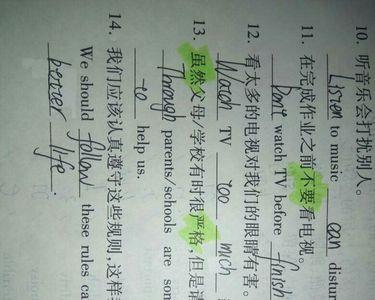 10. 听音乐会打扰别人。
Listen to music can distur
11. 在完成作业之前不要看电视。
Don't watch TV before finish
12. 看太多的电视对我们的眼睛有害。
Watch TV too much
13. 虽然父母/学校有时很严格,但是
Though parents/schools are som
to help us.
14. 我们应该认真遵守这些规则,这样
We should follow these rules ca
better life.